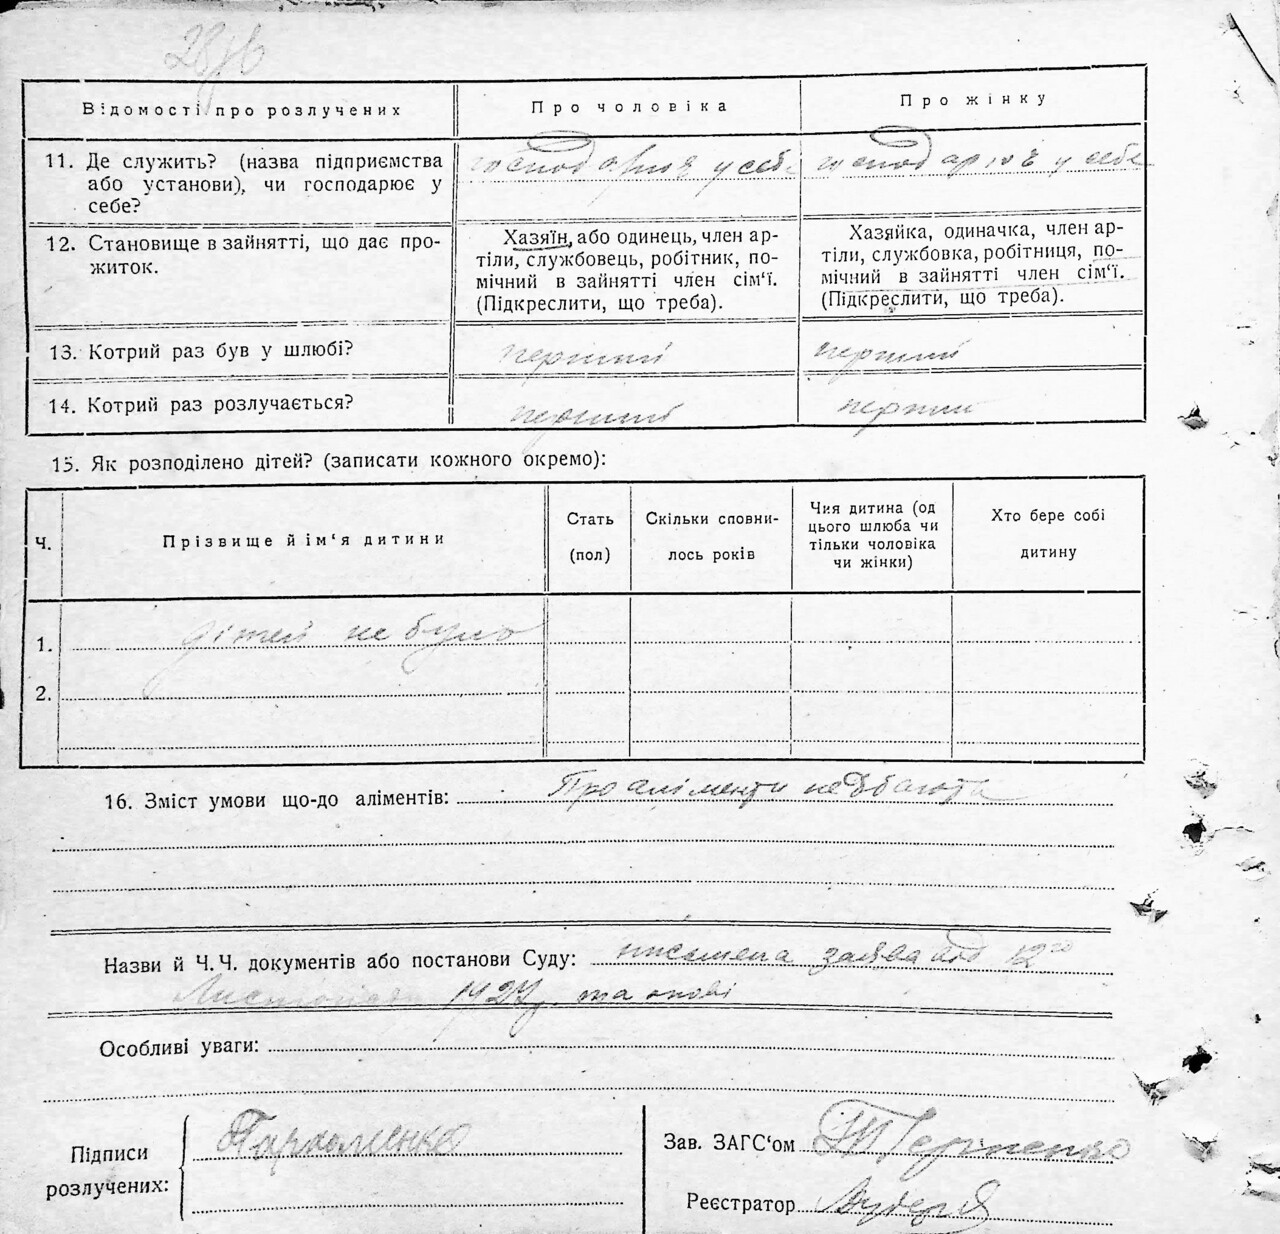 Відомості про розлучених
Про чоловіка
Про жінку
11. Де служить? (назва підприємства
або установи), чи господарює у
себе?
господарює у себе
господарює у себе
12. Становище в зайнятті, що дає про-
житок.
Хазяїн, або одинець, член ар-
тіли, службовець, робітник, по-
мічний в зайнятті член сім‘ї.
(Підкреслити, що треба).
Хазяйка, одиначка, член ар-
тіли, службовка, робітниця, по-
мічний в зайнятті член сім‘ї.
(Підкреслити, що треба).
13. Котрий раз був у шлюбі?
перший
перший
14. Котрий раз розлучається?
перший
перший
15. Як розподілено дітей? (записати кожного окремо):
Ч.
Прізвище й ім‘я дитини
Стать
(пол)
Скільки сповни-
лось років
Чия дитина (од
цього шлюба чи
тільки чоловіка
чи жінки)
Хто бере собі
дитину
1. дітей не було
2.
16. Зміст умови що-до аліментів: Про аліменти не дбають
Назви й Ч. Ч. документів або постанови Суду: письмена заява від 12го
Листопада 1927 р. та
Особливі уваги:
Підписи
розлучених:
Пархоменко
Зав. ЗАГС‘ом
Реєстратор